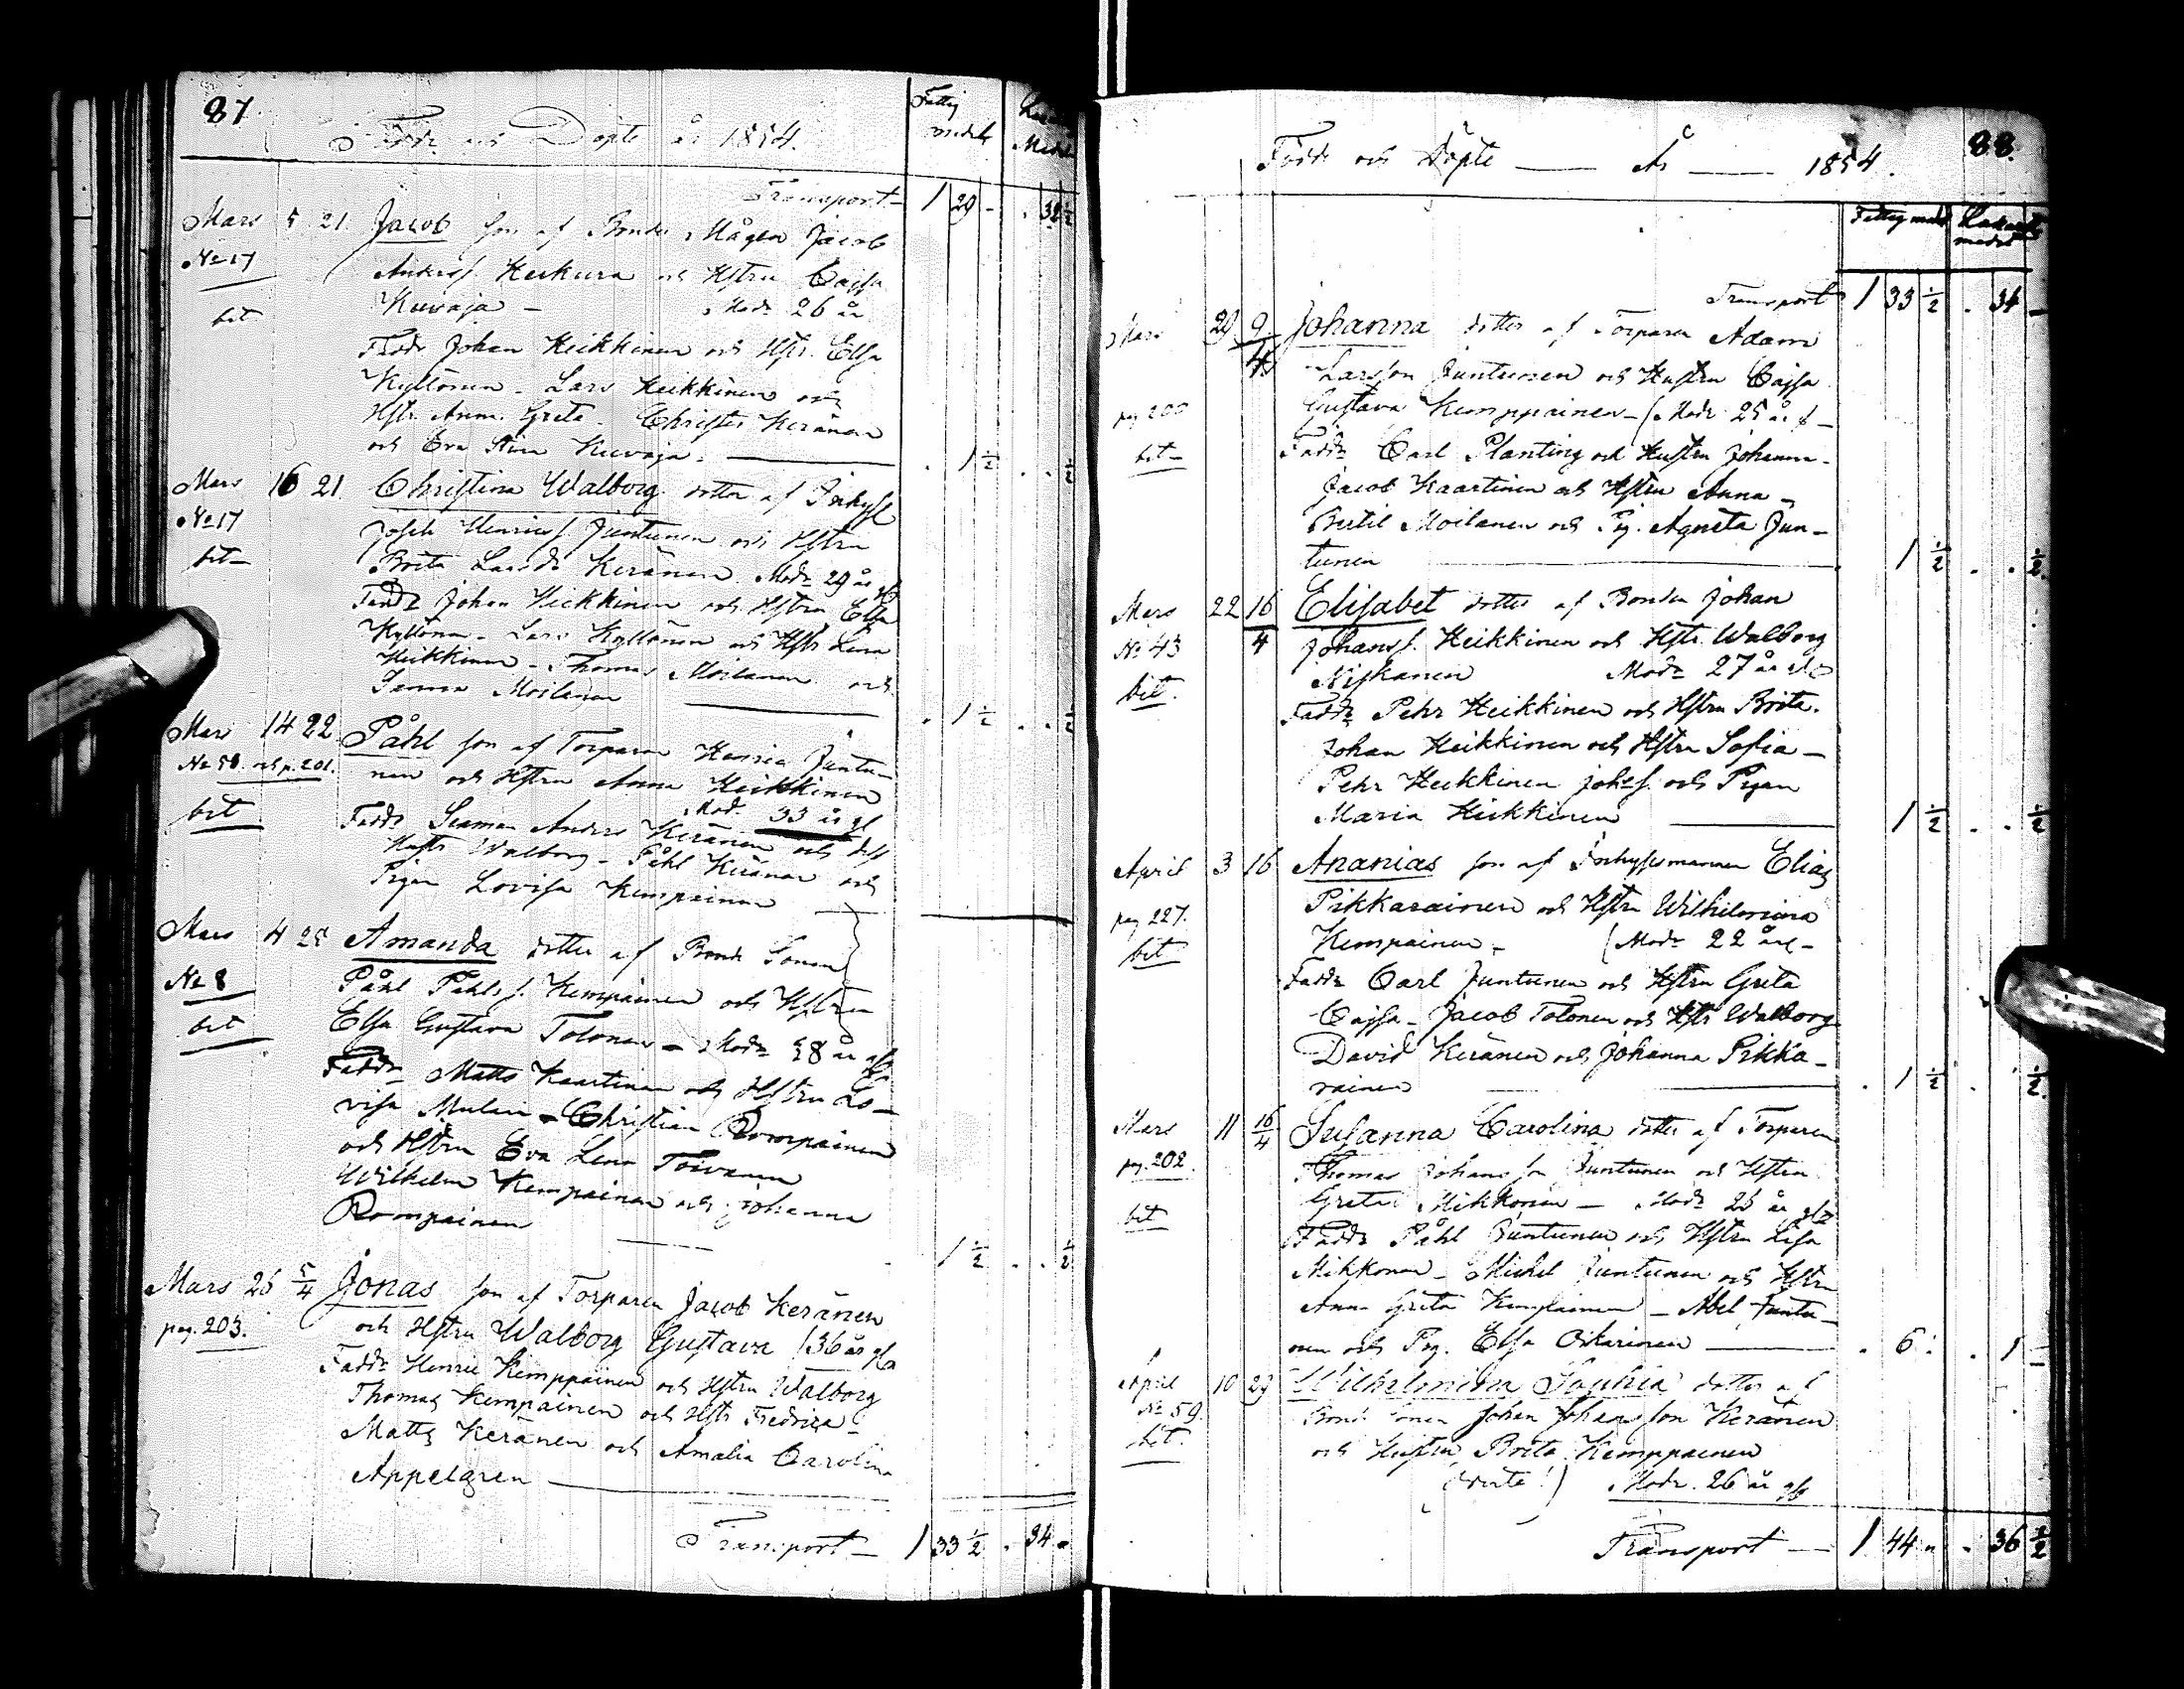 87
Födde och Döpte år 1854.
Fattig medel
Medel
Transport 1 29 - . 32 ½
Mars 5 21. Jacob son af Bonde Mågen Jacob
No 17 Anderss. Keikura och Hstru Cajsa
bet Kuvaja - Modr 26 år
Faddr Johan Heikkinen och Hstr. Elsa
Kyllönen - Lars Heikkinen och
Hstr. Anna Greta - Christer Keränen
och Eva Stina Kuvaja. . 1 ½ . . ½
Mars 16 21. Christina Walborg dotter af Inhys
No 17 Joseph Henricss. Juntunen och Hstru
bet Brita Larsdr Keränen Modr 29 år gl
Faddr Johan Heikkinen och Hstru Elsa
Kyllönen - Lars Kyllönen och Hstr Lena
Heikkinen - Thomas Moilanen och
Moilanen . 1 ½ . . ½
Mars 14 22. Påhl son af Torparen Henric Juntu-
No 58. och p. 201. nen och Hstru Anna Heikkinen
Mod. 33 år gl
bet Faddr Anders Keränen och dess
Hustr Walborg - Påhl Keränen och
Pigan Lovisa Kempainen
Mars 4 25 Amanda dotter af Bonde Sonen
No 8 Påhl Påhlss. Kempainen och Hstrun
bet Elsa Gustava Tolonen - Modr 38 år gl
Faddr Matts Kaartinen och Hstru Lo-
visa Mulari - Christian Rompainen
och Hstru Eva Lena Toivanen
Wilhelm Kempainen och Johanna
Rompainen . 1 ½ . . ½
Mars 26 5/4 Jonas son af Torparen Jacob Keränen
pag. 203. och Hstru Walborg Gustava (36 år gl
Faddr Henric Kemppainen och Hstru Walborg
Thomas Kempainen och Hstr Fredrica -
Matts Keränen och Amalia Carolina
Appelgren
Transport - 1 33 ½ . 34 -
88.
Födde och Döpte År 1854.
Fattig med medel
Transport 1 33 ½ . 34 -
Mars 29 9/4 Johanna dotter af Torparen Adam
Larsson Juntunen och Hustru Cajsa
pag 200 Gustava Kemppainen - (Modr 25 år) -
bet - Faddr Carl Planting och Hustru Johanna -
Jacob Kaartinen och Hstru Anna -
Bertil Moilanen och Pig. Agneta Jun-
tunen . 1 ½ . . ½
Mars 22 16/4 Elisabet dotter af Bonden Johan
No 43 Johanss. Heikkinen och Hstr. Walborg
bet. Niskanen Modr 27 år gl
Faddr Pehr Heikkinen och Hstru Brita.
Johan Heikkinen och Hstru Sofia -
Pehr Heikkinen Johss. och Pigan
Maria Heikkinen 1 ½ . . ½
April 3 16 Ananias son af Inhysesmannen Elias
pag 227. Pikkarainen och Hstru Wilhelmina
bet Kempainen - (Modr 22 år -
Faddr Carl Juntunen och Hstru Greta
Cajsa - Jacob Tolonen och Hstr Walborg
David Keränen och Johanna Pikka-
rainen . 1 ½ . . ½
Mars 11 16/4 Susanna Carolina dotter af Torparen
pag. 202. Thomas Johansson Juntunen och Hstru
bet Greta Mikkonen - Modr 26 år gl
Faddr Påhl Juntunen och Hstru Lisa
Mikkonen - Michel Juntunen och Hstru
Anna Greta Kempainen - Abel Juntu-
nen och Pig. Elsa Oikarinen . 6 . . 1 -
April 10 29 Wilhelmina Sophia dotter af
No 59. Bonde Sonen Johan Johansson Keränen
bet. och Hustru Brita Kemppainen
(verte!) Modr. 26 år gl
Transport - 1 44 " . 36 ½